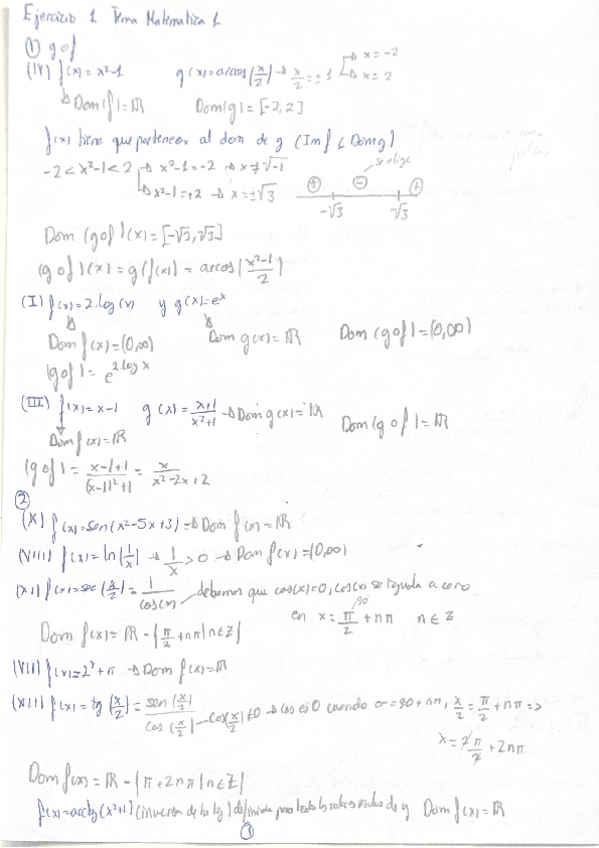 Ejercicio 1 Tema Matematica 1
① gof
(IV) f(x) = x²-1 g(x) = arcos(x/2) → x/2 = ±1 → x = -2
→ x = 2
↳ Dom(f) = ℝ Dom(g) = [-2,2]
f(x) tiene que pertenecer al dom de g (Im f ≤ Dom g)
-2 < x²-1 < 2 → x²-1 = -2 → x ≠ √-1 se elige
↳ x²-1 = +2 → x = ±√3 ⊕ ⊖ ⊕
-√3 √3
Dom (gof)(x) = [-√3, √3]
(gof)(x) = g(f(x)) = arcos(x²-1/2)
(I) f(x) = 2.log(x) y g(x) = eˣ
Dom f(x) = (0,∞) Dom g(x) = ℝ Dom (gof) = (0,∞)
(gof) = e^2.log x
(III) f(x) = x-1 g(x) = x+1/x²+1 → Dom g(x) = ℝ Dom (gof) = ℝ
Dom f(x) = ℝ
(gof) = x-1+1/(x-1)²+1 = x/x²-2x+2
②
(X) f(x) = sen(x²-5x+3) → Dom f(x) = ℝ
(VIII) f(x) = ln(1/x) → 1/x > 0 → Dom f(x) = (0,∞)
(XI) f(x) = sec(x/2) = 1/cos(x) debemos que cos(x) = 0, cos(x) se iguala a cero
en x = π/2 + nπ n ∈ Z 90
Dom f(x) = ℝ - {π/2 + nπ | n ∈ Z}
(VII) f(x) = 2ˣ + π → Dom f(x) = ℝ
(XII) f(x) = tg(x/2) = sen(x/2)/cos(x/2) → cos(x/2) ≠ 0 → cos es 0 cuando α = 90 + nπ, x/2 = π/2 + nπ =>
x = 2π/2 + 2nπ
Dom f(x) = ℝ - {π + 2nπ | n ∈ Z}
f(x) = arctg(x²+1) (inversa de la tg) definida para todos los valores reales de y Dom f(x) = ℝ
①